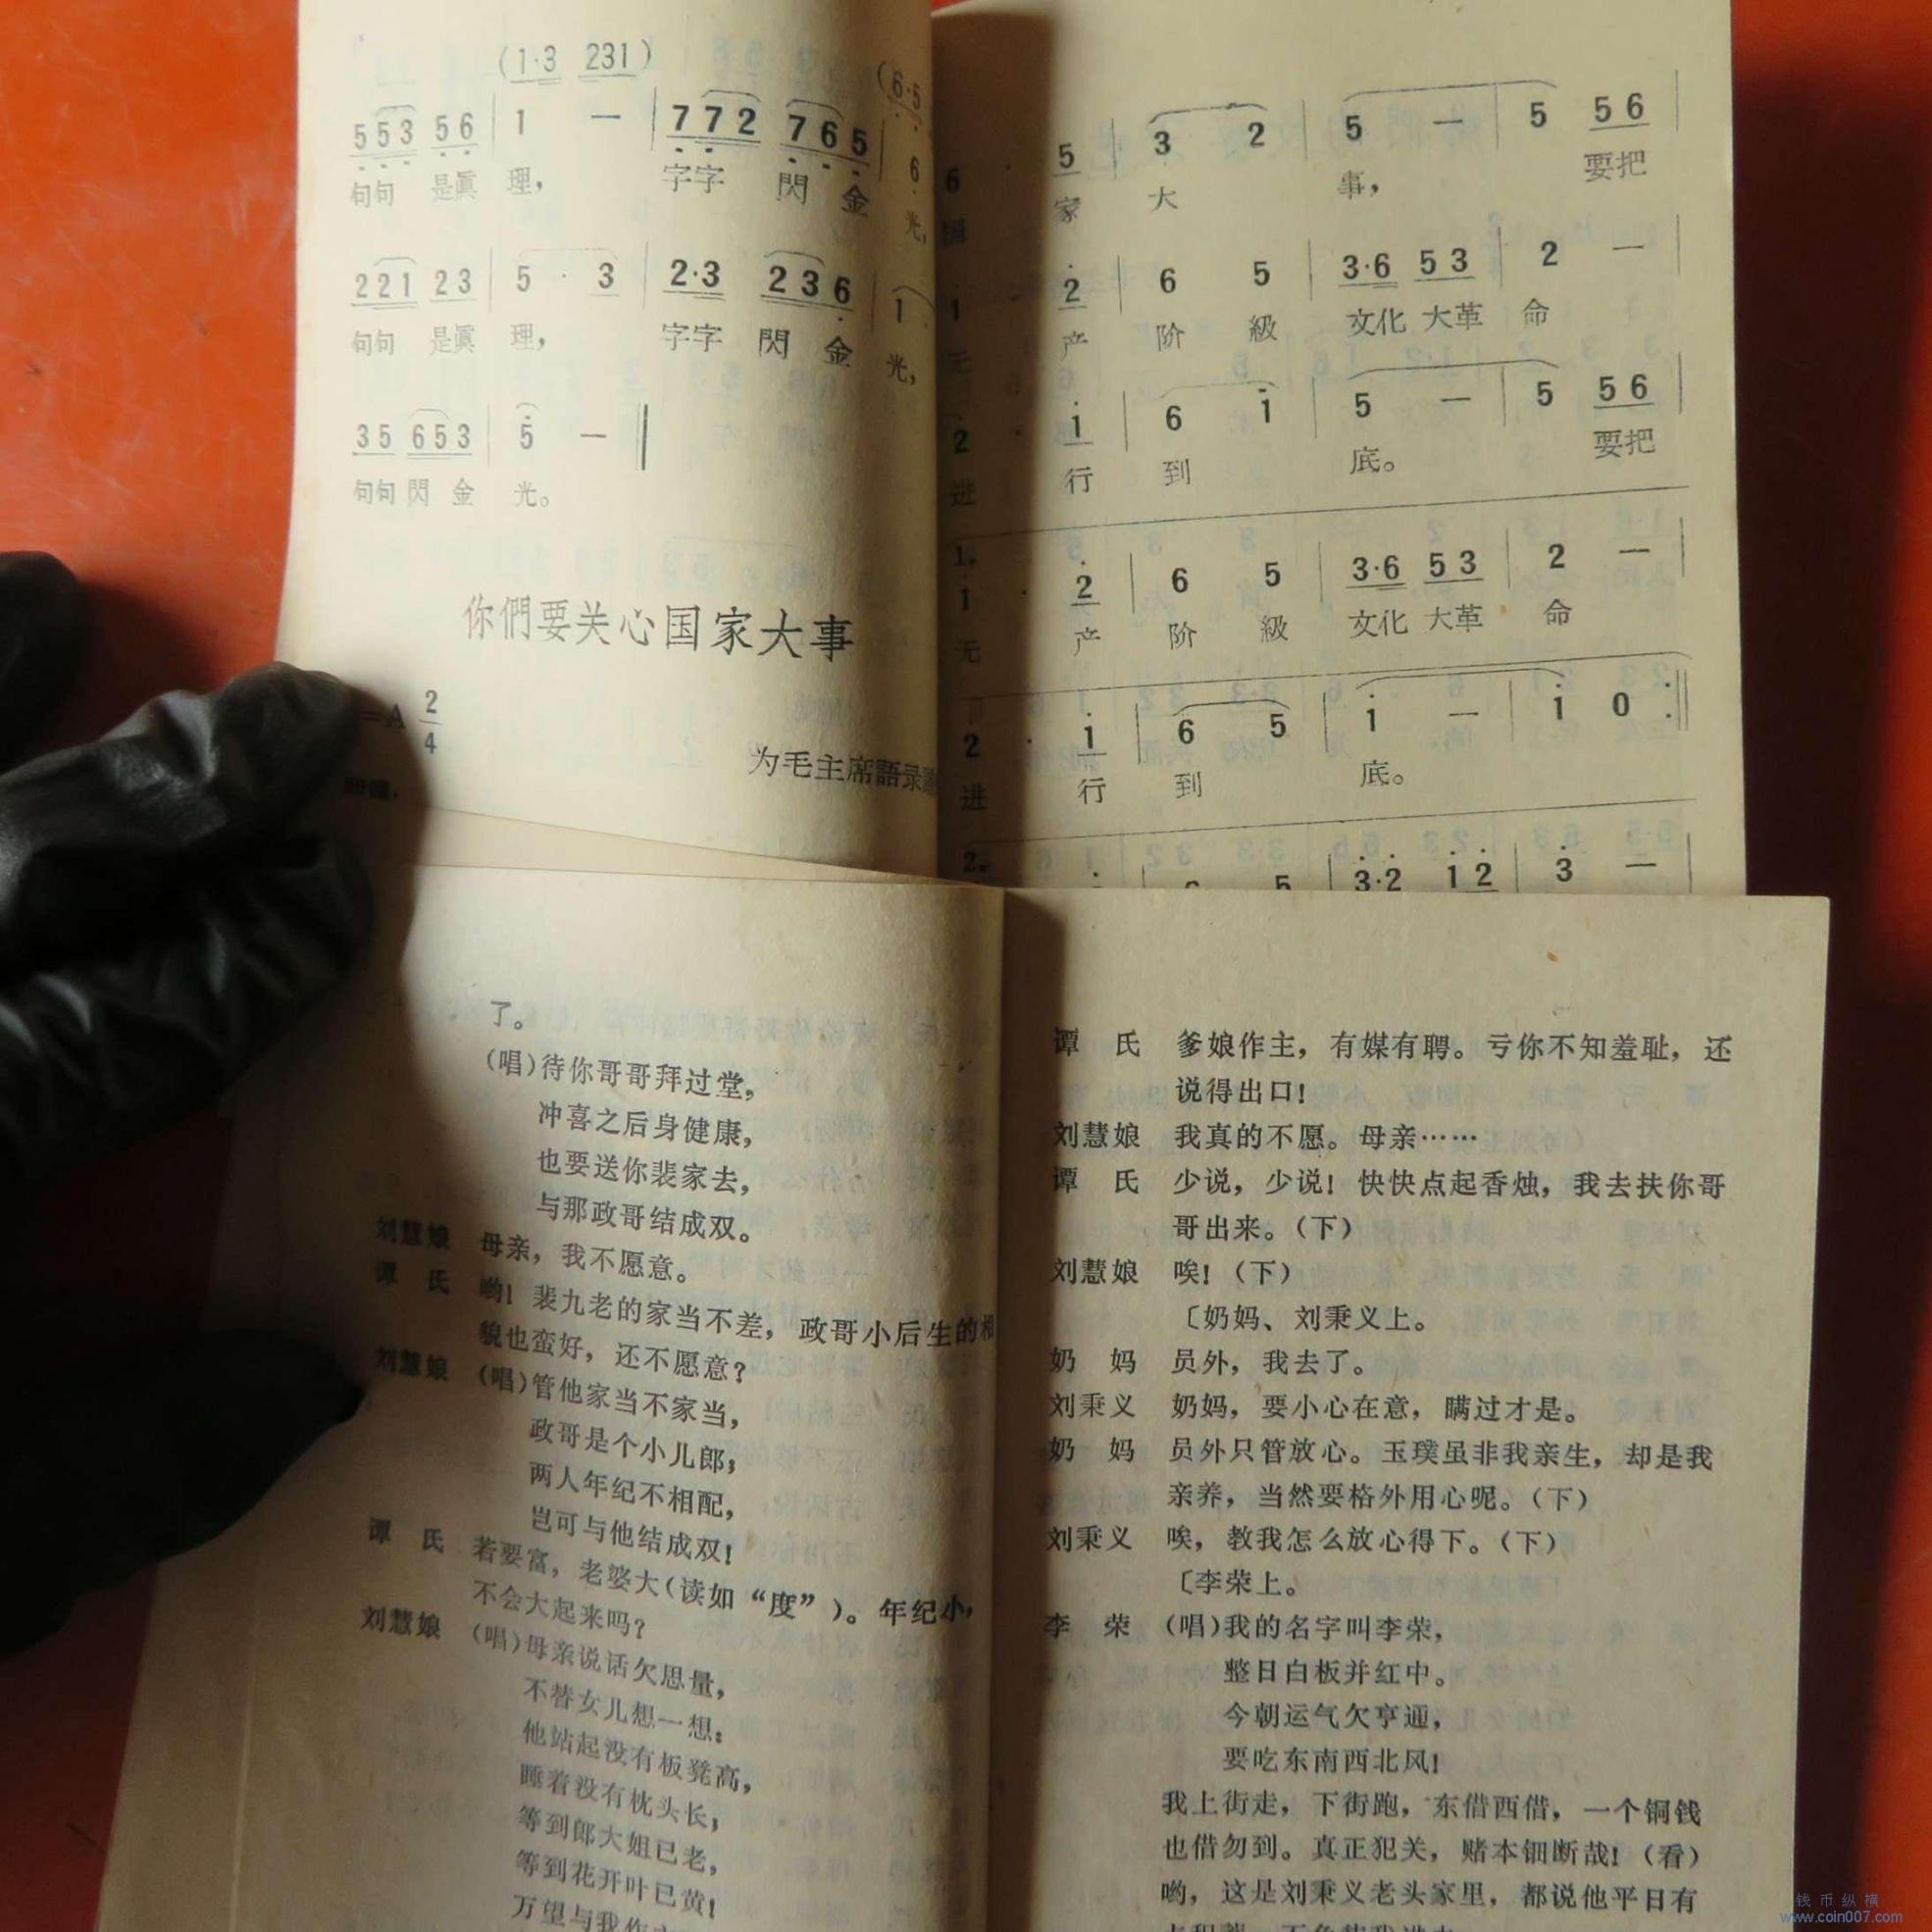 (1·3 231)
5 5 3 5 6 | 1 — | 7 7 2 7 6 5 | 6
句句 是眞 理, 字字 閃 金 光,
2 2 1 2 3 | 5 · 3 | 2·3 2 3 6 | 1
句句 是眞 理, 字字 閃 金 光,
3 5 6 5 3 | 5 —
句句 閃 金 光。
你們要关心国家大事
=A 2/4
为毛主席語录
6 · 5 | 3 2 | 5 — | 5 5 6
国 家 大 事, 要把
1 · 2 | 6 5 | 3·6 5 3 | 2 —
无 产 阶 級 文化 大革 命
2 · 1 | 6 1 | 5 — | 5 5 6
进 行 到 底。 要把
1.
1 · 2 | 6 5 | 3·6 5 3 | 2 —
无 产 阶 級 文化 大革 命
2 · 1 | 6 5 | 1 — | 1 0
进 行 到 底。
2.
3·2 1 2 | 3 —
了。
(唱)待你哥哥拜过堂,
冲喜之后身健康,
也要送你裴家去,
与那政哥结成双。
刘慧娘 母亲，我不愿意。
谭 氏 哟! 裴九老的家当不差，政哥小后生的相
貌也蛮好，还不愿意?
刘慧娘 (唱)管他家当不家当,
政哥是个小儿郎;
两人年纪不相配,
岂可与他结成双!
谭 氏 若要富，老婆大(读如“度”)。年纪小,
不会大起来吗?
刘慧娘 (唱)母亲说话欠思量,
不替女儿想一想:
他站起没有板凳高,
睡着没有枕头长;
等到郎大姐已老,
等到花开叶已黄!
万望与我作
谭 氏 爹娘作主，有媒有聘。亏你不知羞耻，还
说得出口!
刘慧娘 我真的不愿。母亲……
谭 氏 少说，少说! 快快点起香烛，我去扶你哥
哥出来。(下)
刘慧娘 唉! (下)
〔奶妈、刘秉义上。
奶 妈 员外，我去了。
刘秉义 奶妈，要小心在意，瞒过才是。
奶 妈 员外只管放心。玉璞虽非我亲生，却是我
亲养，当然要格外用心呢。(下)
刘秉义 唉，教我怎么放心得下。(下)
〔李荣上。
李 荣 (唱)我的名字叫李荣,
整日白板并红中。
今朝运气欠亨通,
要吃东南西北风!
我上街走，下街跑，东借西借，一个铜钱
也借勿到。真正犯关，赌本钿断哉! (看)
哟，这是刘秉义老头家里，都说他平日有
钱币纵横
www.coin007.com